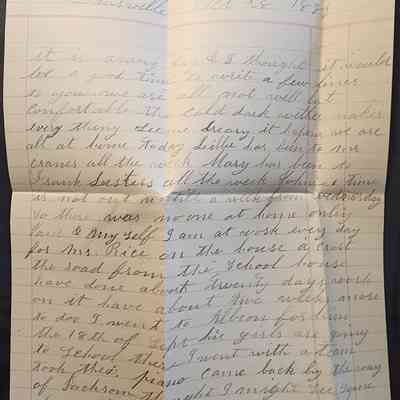 Oct 28 188
it is a rainy day & I thought it would
be a good time to write a few lines
to you we are all not well but
comfortable the cold dark wether makes
every thing seeme dreary it
all at home today Sedie has bin to
cranes all the week Mary has been to
Frank Susters all the week John s time
is not out untill a week from Wednesday
so there was no one at home only
& my self I am at work every day
for Mr. Rice on the house a crost
the road from the School house
have done about twenty days work
on it have about two weeks more
to doo I went to Albion for him
the 18th of Sept his girls are going
to School there I went with a team
took their piano came back by the way
of Jackson thought I might see some